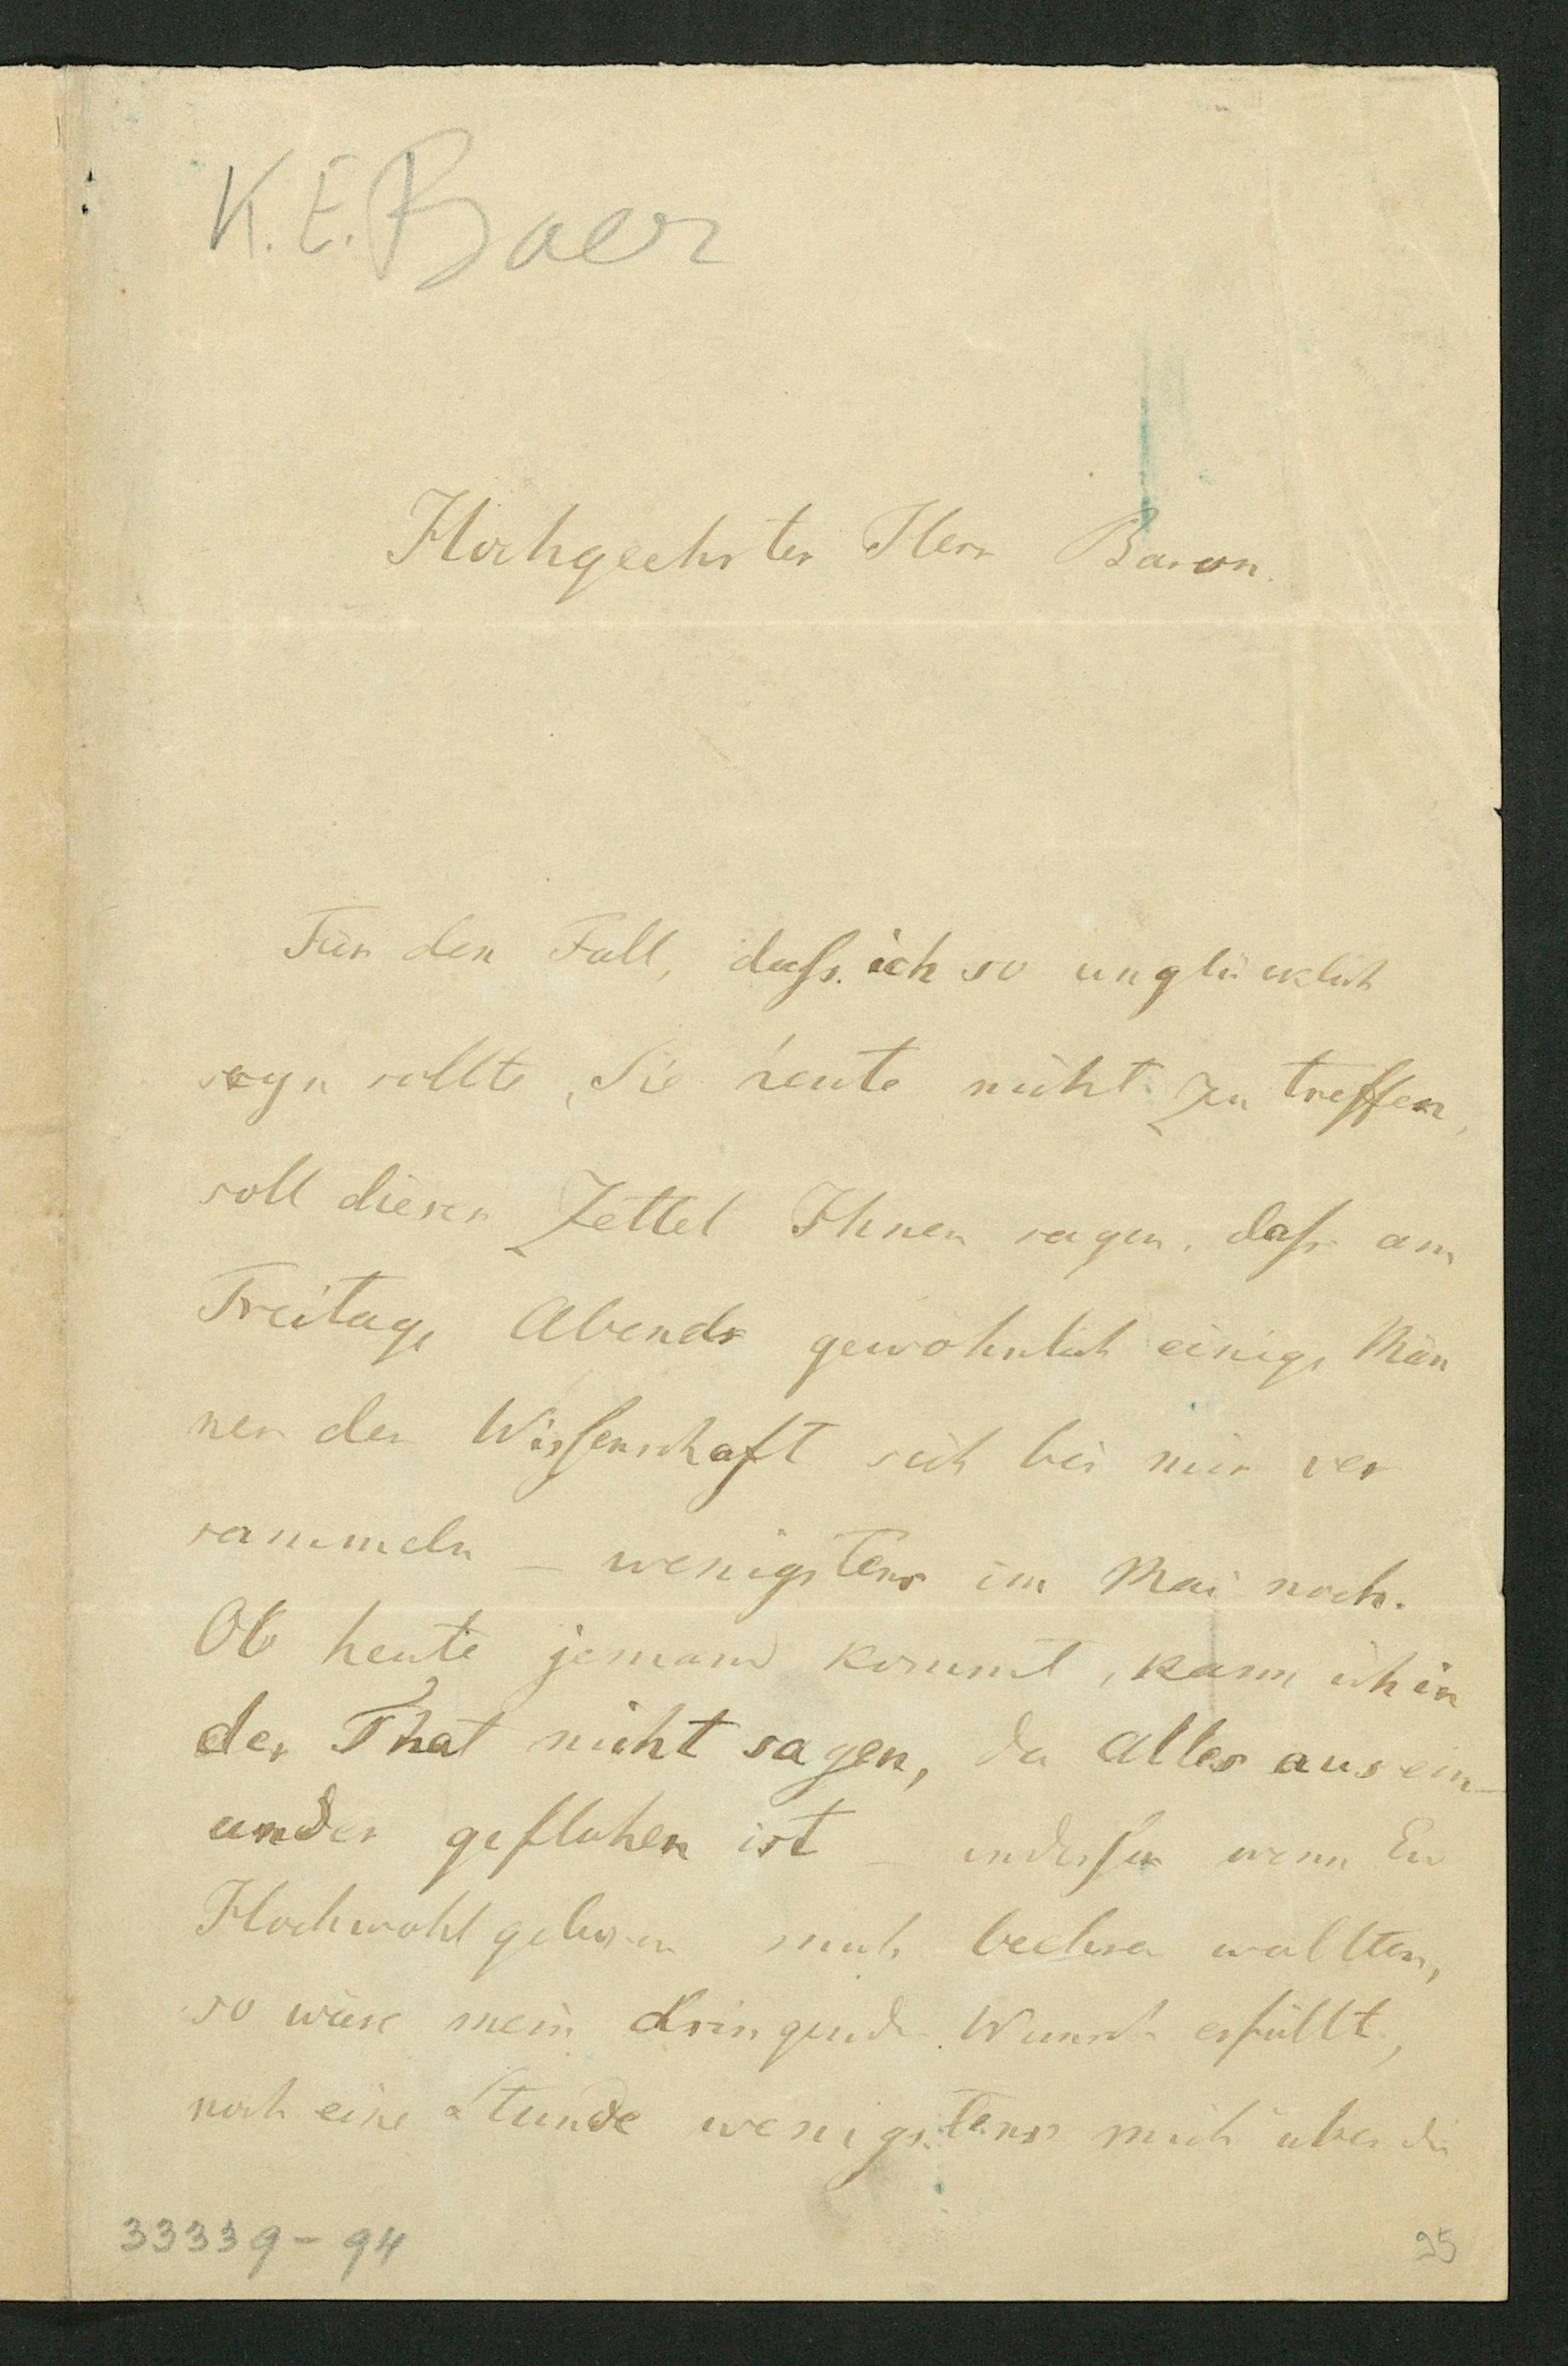 K. E. Baer
Hochgeehrter Herr Baron.
Für den Fall, daſs ich so unglücklich
seyn sollte, Sie heute nicht zu treffen,
soll dieser Zettel Ihnen sagen, daſs am
Freitage Abends gewöhnlich einige Män
ner der Wiſsenschaft sich bei mir ver
sammeln – wenigstens im Mai noch.
Ob heute jemand kommt, kann ich in
der That nicht sagen, da alles ausein–
ander geflohen ist – indeſsen wenn Ew
Hochwohlgeboren mich beehren wollten,
so wäre mein dringender Wunsch erfüllt,
noch eine Stunde wenigstens mich über die
33339 – 94
95